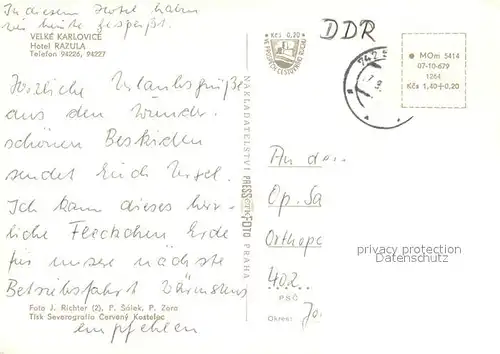 In diesem Hotel haben
wir heute gespeist.
VELKÉ KARLOVICE
Hotel RAZULA
Telefon 94226, 94227
Herzliche Urlaubsgrüße
aus den Wunder-
schönen Beskiden
sendet Euch Ursel.
Ich kann dieses herr-
liche Fleckchen Erde
für unsere nächste
Betriebsfahrt wärmstens
empfehlen
Foto J. Richter (2), P. Šálek, P. Zora
Tisk Severografia Červený Kostelec
NAKLADATELSTVÍ PRESSFOTO PRAHA
Kčs 0,20
DDR
MOm 5414
07-10-679
1264
Kčs 1,40+0,20
An de
Op. Sa
Orthope
402
PSČ
Okres:
privacy protection
Datenschutz